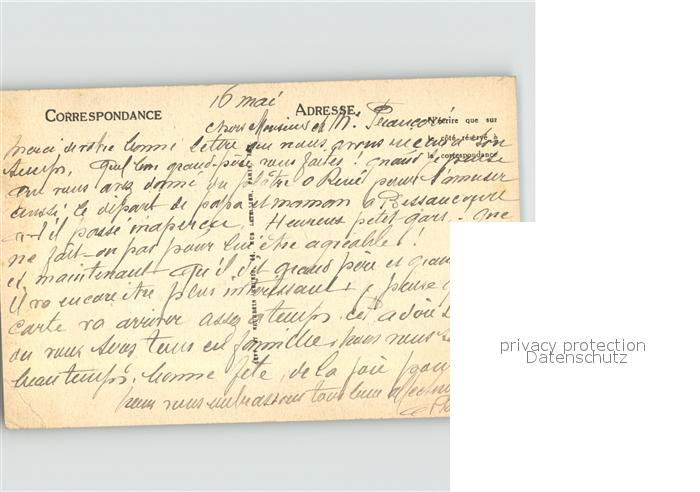 16 mai
CORRESPONDANCE
ADRESSE
N'écrire que sur
le côté réservé à
la correspondance
Chers Monsieur et M.
Merci de votre bonne lettre que nous avons reçue à son
temps. Quel bon grand-père vous faites! Quand je pense
que vous avez donné du plâtre à René pour l'amuser
aussi le départ de papa et maman à Bessancourt
a-t-il passé inaperçu. Heureux petit gars! Que
ne fait-on pas pour lui être agréable!
et maintenant qu'il dit grand père et
il va encore être plus intéressant. je pense
carte va arriver assez à temps ce
où vous serez tous en famille, vous
beau temps, bonne fête, de la joie pour
nous vous embrassons tous bien
privacy protection
Datenschutz